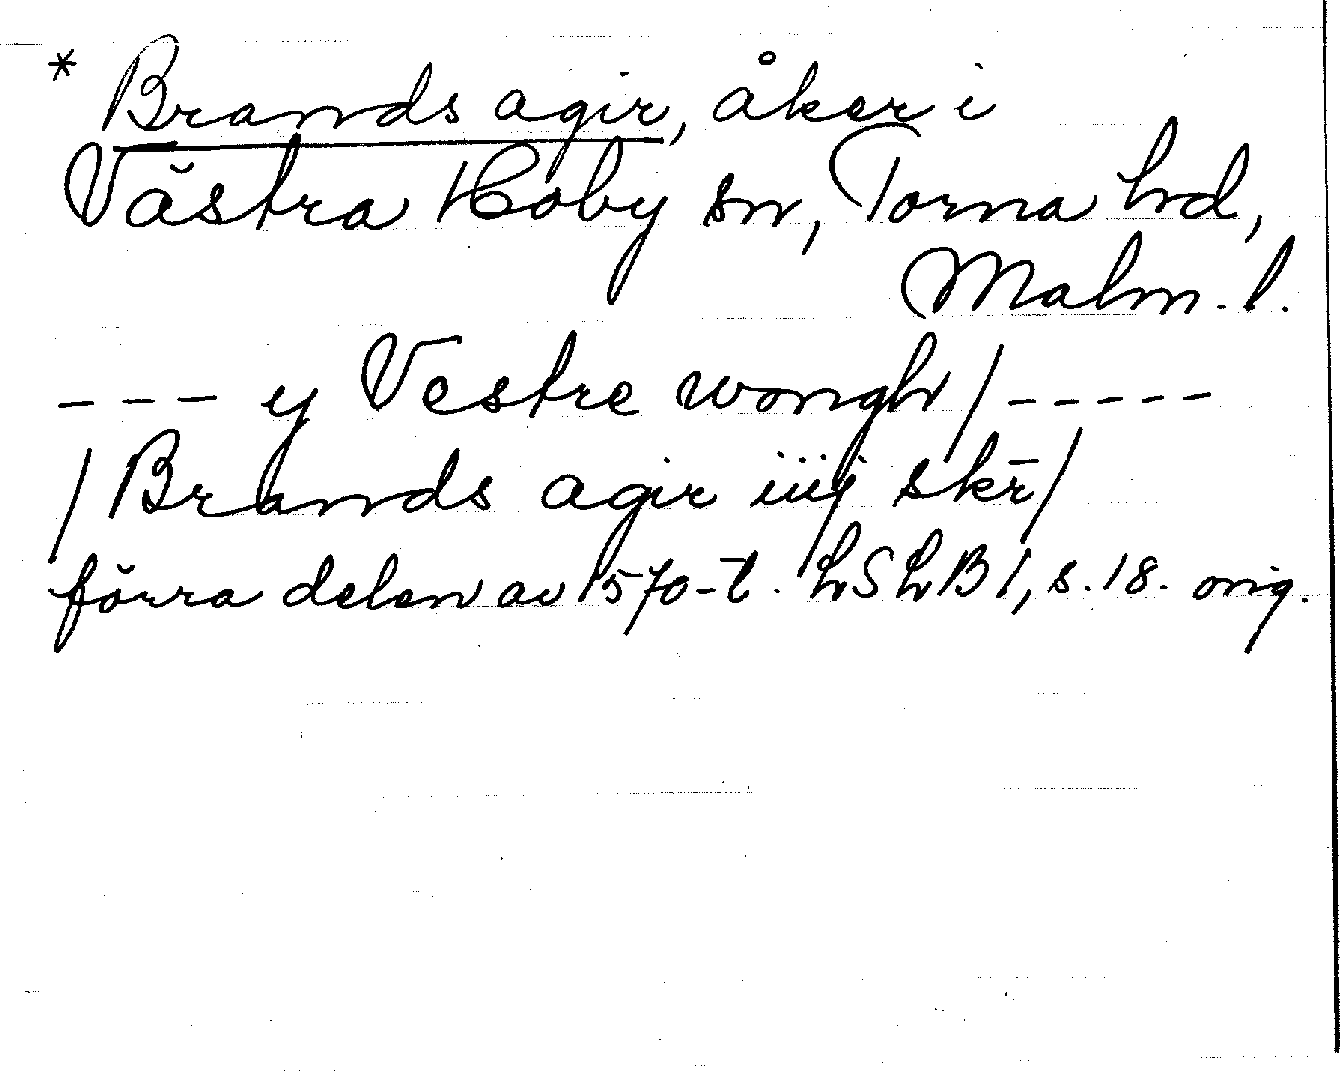 * Brands agir, åker i
Västra Hoby sn, Torna hd,
Malm. l.
--- y Vestre wongh/-----
/Brands agir iiij skr̄/
förra delen av 1570-t. LSLB1, s. 18. orig.